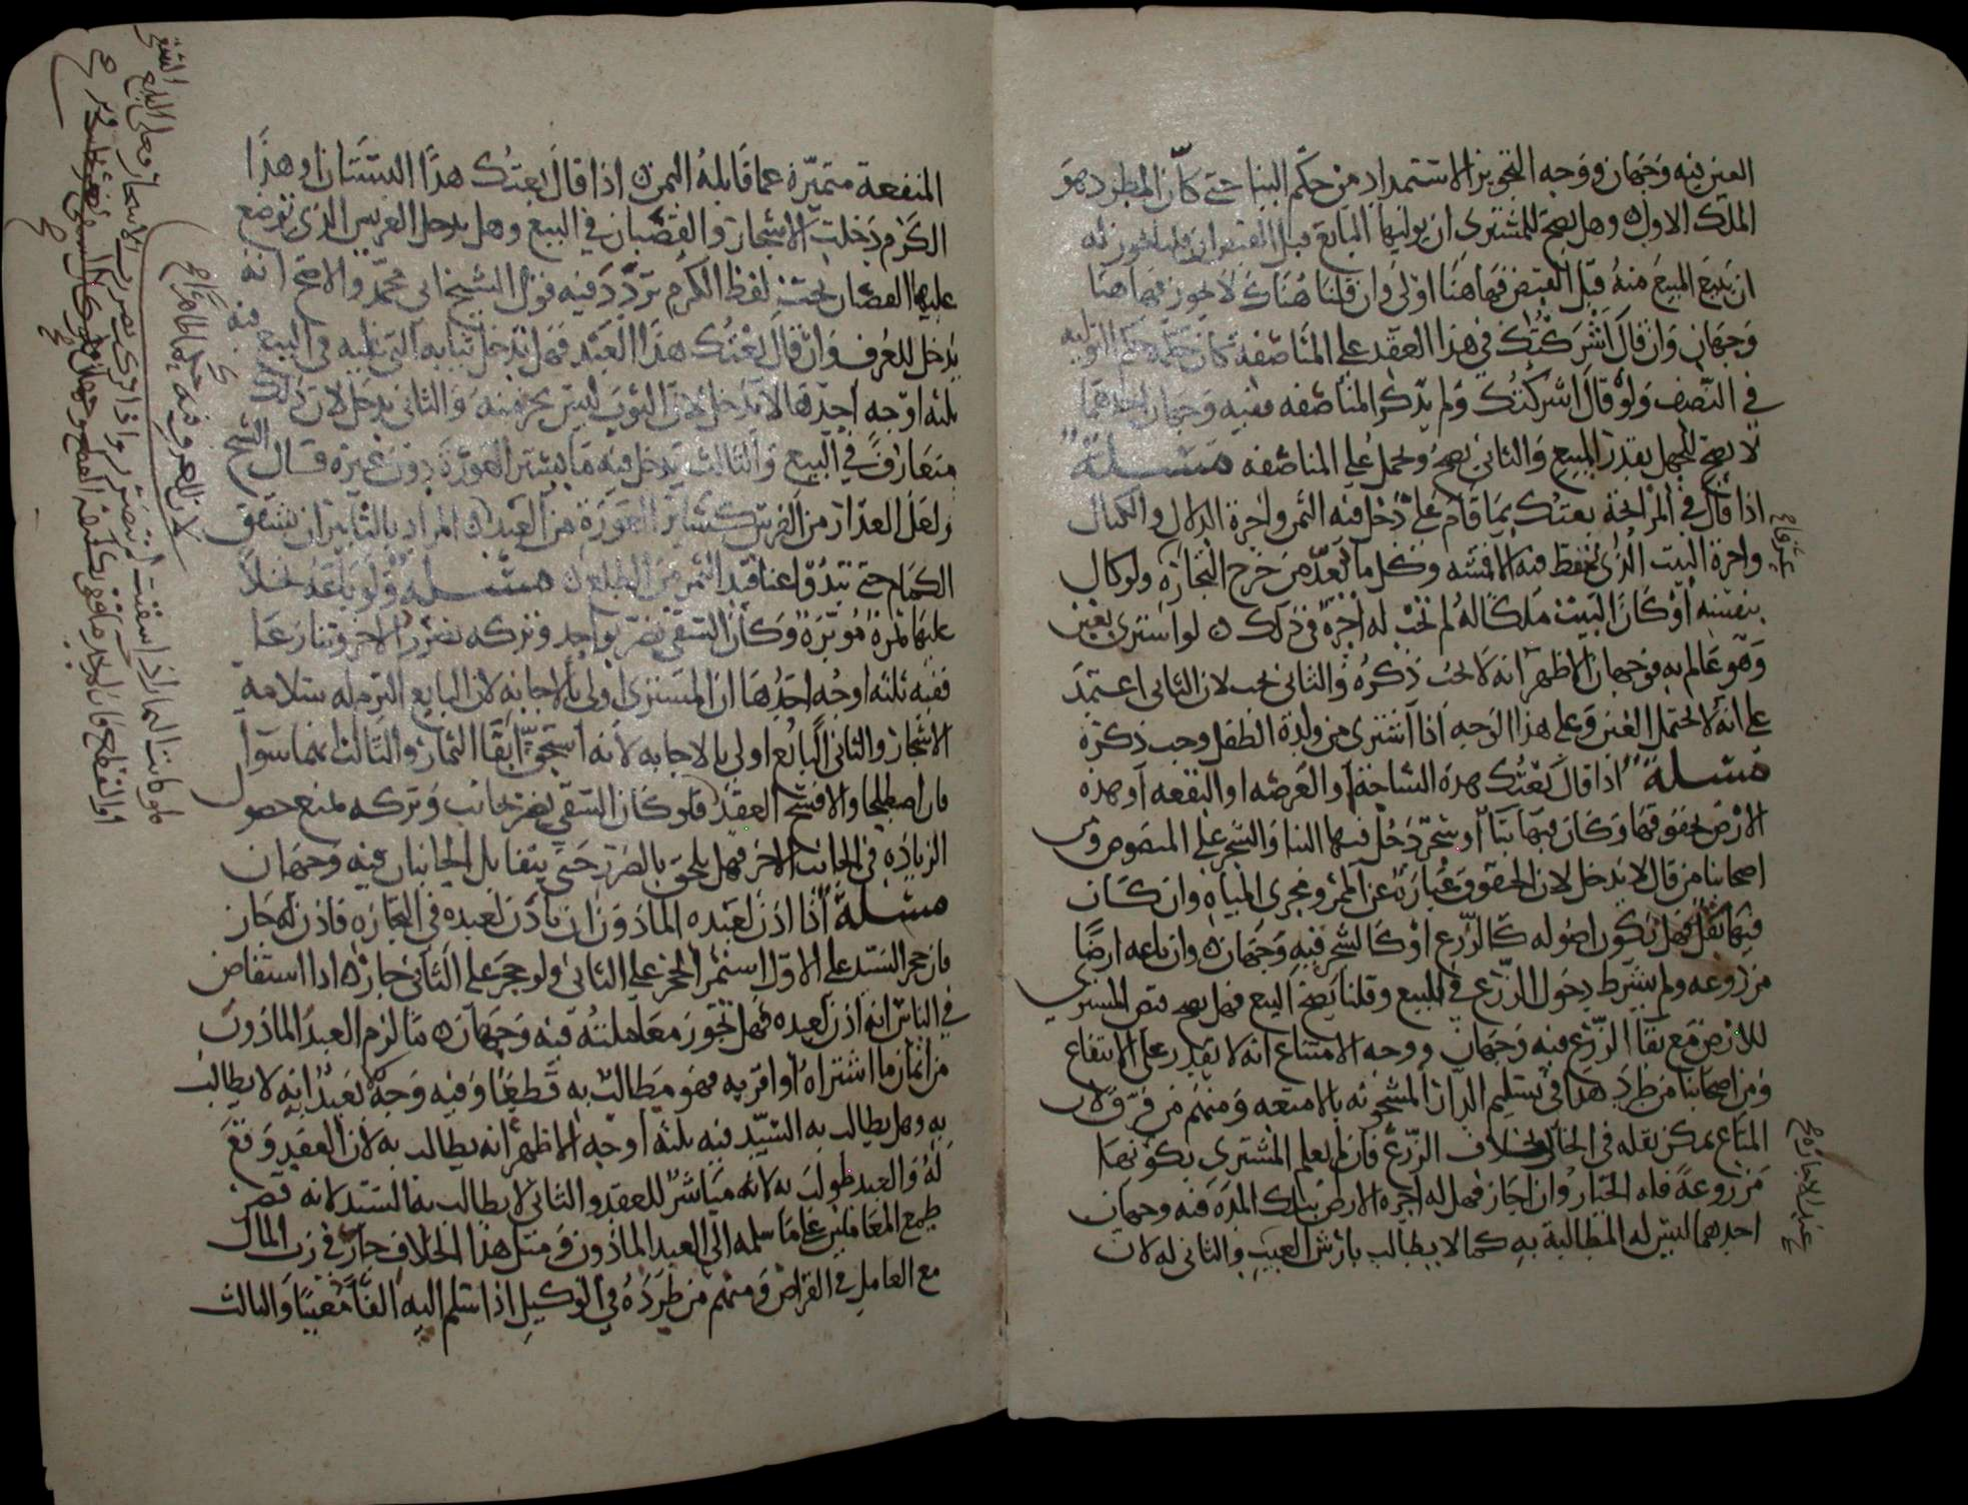 العين فيه وجهان ووجه التجويز الاستمداد من حكم البنا حتى كان المطرد هو
الملك الاول وهل يصح للمشترى ان يوليها البايع قبل القبض ان قلنا يجوز له
ان يبيع المبيع منه قبل القبض فهاهنا اولى وان قلنا هناك لا يجوز فهاهنا
وجهان وان قال اشركتك في هذا العقد على المناصفة كان حكمه حكم التوليه
في النصف ولو قال اشركتك ولم يذكر المناصفه ففيه وجهان احدهما
لا يصح للجهل بقدر المبيع والثاني يصح ويحمل على المناصفه مسئلة
اذا قال في المرابحة بعتك بما قام على دخل فيه الثمن واجرة الدلال والكيال
واجرة البيت الذى تحفظ فيه الاقمشه وكل ما يعد من خرج التجازه ولو كال
بنفسه او كان البيت ملكا له لم تجب له اجرة في ذلك لو اشترى بغبن
وهو عالم به فوجهان الاظهر انه لا يجب ذكره والثاني يجب لان الثاني اعتمد
على انه لا يحتمل الغبن وعلى هذا الوجه اذا اشترى من ولده الطفل وجب ذكره
مسئلة اذا قال بعتك هذه الساحة او العرصه او البقعه او هذه
الارض بحقوقها وكان فيها بنا او شجر دخل فيها البنا والشجر على المنصوص ومن
اصحابنا من قال لا يدخل لان الحقوق عبارة عن الممر ومجرى المياه وان كان
فيها بقل فهل يكون اصوله كالزرع او كالشجر فيه وجهان وان باعه ارضا
مزروعه ولم يشرط دخول الزرع في المبيع وقلنا يصح البيع فهل يصح قبض المشترى
للارض مع بقا الزرع فيه وجهان ووجه الامتناع انه لا يقدر على الانتفاع
ومن اصحابنا من طرد هذا في تسليم الدار المشحونه بالامتعه ومنهم من فرق لان
المتاع يمكن نقله في الحال بخلاف الزرع فان لم يعلم المشترى بكونها
مزروعة فله الخيار وان اجاز فهل له اجرة الارض بتلك المدة فيه وجهان
احدهما ليس له المطالبة به كما لا يطالب بارش العيب والثاني له لان
المنفعة متميزة عما قابله الثمن اذا قال بعتك هذا البستان او هذا
الكرم دخلت الاشجار والقضبان في البيع وهل يدخل العريس الذى توضع
عليها القضبان تحت لفظ الكرم تردد فيه قول الشيخ ابى محمد والاصح انه
يدخل للعرف وان قال بعتك هذا العبد فهل تدخل ثيابه التي عليه في البيع فيه
ثلثه اوجه احدها لا يدخل لان الثوب ليس بجز منه والثاني يدخل لان ذلك
متعارف في البيع والثالث يدخل فيه ما يستر العورة دون غيره قال الشيخ
ولعل العذار من الفرس كساتر العورة من العبد المراد بالتابير ان تشقق
الكمام حتى تبدوا عناقيد الثمر من الطلع مسئلة ولو باعه نخلا
عليها ثمرة موبرة وكان السقى يضر بواحد وتركه يضر الاخر وتنازعا
ففيه ثلثه اوجه احدها ان المشترى اولى بالاجابه لان البايع التزم له سلامة
الاشجار والثاني البائع اولى بالاجابه لانه استحق ابقا الثمار والثالث انهما سوا
فان اصطلحا والا فسخ العقد فلو كان السقى يضر بجانب وتركه لمنع حصول
الزيادة في الجانب الاخر فهل يلحق بالضرر حتى يتقابل الجانبان فيه وجهان
مسئلة اذا اذن لعبده الماذون ان ياذن لعبده في التجازه فاذن له جاز
فان حجر السيد على الاول استمر الحجر على الثاني ولو حجر على الثاني جاز اذا استفاض
في الناس انه اذن لعبده فهل تجوز معاملته فيه وجهان ما لزم العبد الماذون
من اثمان ما اشتراه او اقر به فهو مطالب به قطعا وفيه وجه بعيد انه لا يطالب
به وهل يطالب به السيد فيه ثلثه اوجه الاظهر انه يطالب به لان العقد وقع
له والعبد طولب به لانه مباشر للعقد والثاني لا يطالب به السيد لانه قصر
طمع المعاملين على ما سلمه الى العبد الماذون ومثل هذا الخلاف جار في رب المال
مع العامل في القراض ومنهم من طرده في الوكيل اذا سلم اليه الفا معينا والثالث